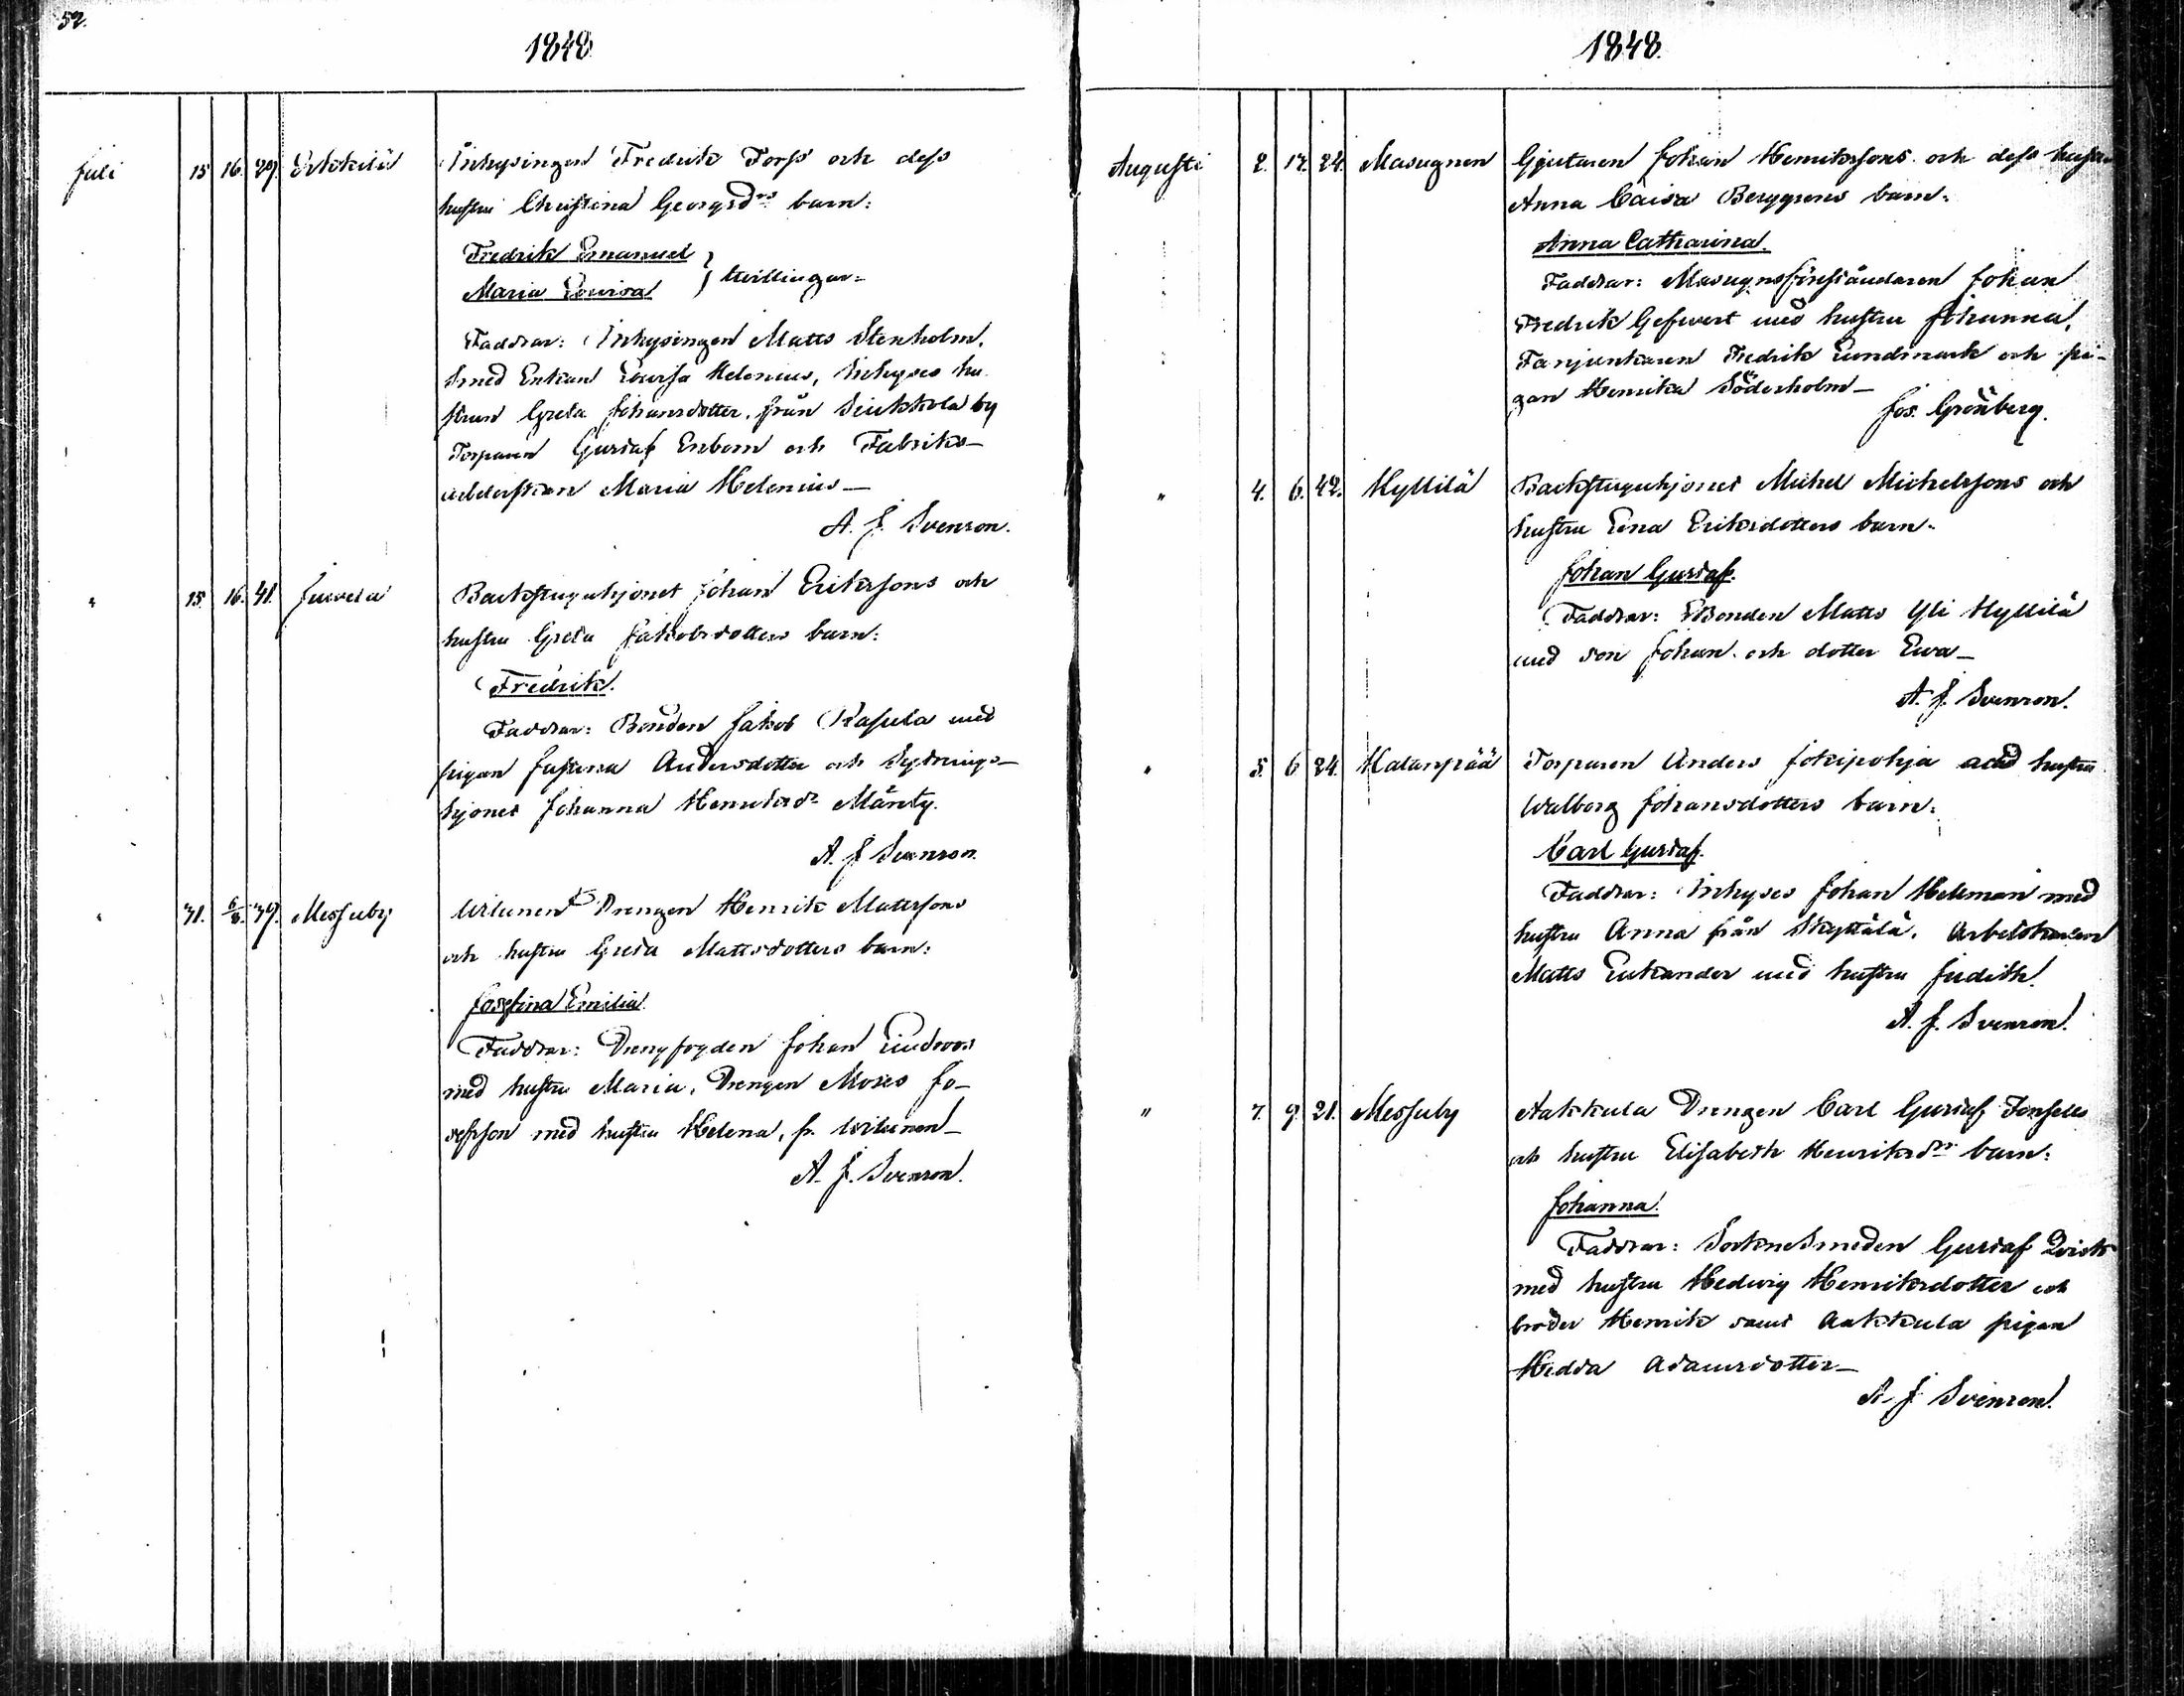 52.
1848.
Juli 15 16. 29. Erkkilä Inhysingen Fredrik Forss och dess
hustru Christina Georgsd:rs barn:
Fredrik Emanuel
Maria Lovisa } tvillingar.
Faddrar: Inhysingen Matts Stenholm,
Smed Enkan Lovisa Helenius, Inhyses hu-
strun Greta Johansdotter, från Siukkola by
Torparen Gustaf Enbom och Fabriks-
arbeterskan Maria Helenius—
A. J. Svenson.
" 15 16. 41. Juvela Backstuguhjonet Johan Erikssons och
hustru Greta Jakobsdotters barn:
Fredrik.
Faddrar: Bonden Jakob Rasula med
pigan Justina Andersdotter och Sytnings-
hjonet Johanna Henriksd:r Mänty.
A. J. Svenson.
" 31. 6/8. 37. Messuby Wilunen Drengen Henrik Mattssons
och hustru Greta Mattsdotters barn:
Josefina Emilia.
Faddrar: Drengfogden Johan Lindroos
med hustru Maria, Drengen Moses Jo-
sefsson med hustru Helena, fr. Wilunen—
A. J. Svenson.
1848.
Augusti 2. 17. 24. Masugnen Gjutaren Johan Henrikssons och dess hustru
Anna Caisa Berggrens barn:
Anna Catharina.
Faddrar: Masugnsföreståndaren Johan
Fredrik Gefwert med hustru Johanna,
Fanjunkaren Fredrik Lundmark och pi-
gan Henrika Söderholm—
Jos. Grönberg.
" 4. 6. 42. Hyllilä Backstuguhjonet Michel Michelssons och
hustru Lena Eriksdotters barn.
Johan Gustaf.
Faddrar: Bonden Matts Yli Hyllilä
med son Johan och dotter Ewa—
A. J. Svenson.
" 5. 6 24. Hatanpää Torparen Anders Jokipohja och hustru
Walborg Johansdotters barn:
Carl Gustaf.
Faddrar: Inhyses Johan Hellman med
hustru Anna från Skyttälä, Arbetskarlen
Matts Enkander med hustru Judith.
A. J. Svenson.
" 7. 9. 21. Messuby Aakkula Drengen Carl Gustaf Forsells
och hustru Elisabeth Henriksd:rs barn:
Johanna.
Faddrar: SockneSmeden Gustaf Qvist
med hustru Hedvig Henriksdotter och
broder Henrik samt Aakkula pigan
Hedda Adamsdotter—
A. J. Svenson.